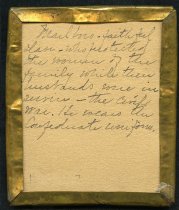 faithful
slave - who protected
the women of the
family while their
husbands were in
service - the Civil
War. He wears the
Confederate uniform.